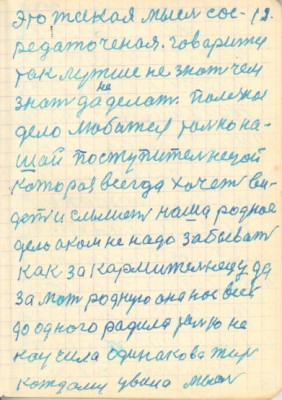 Это жекая мысл сос- 12.
редаточеная. говаритса
так лутше не знат чем
знат да не делат. Полежное
дело любатса толко на-
шай поступителнецой
которая всегда хочет ви-
дет и слышет наша родное
дело о ком не надо забыват
как за кармителнецу да
за мат родную она нас всех
до одного радила толко не
научила одинакова жит
каждаму у вана мысл